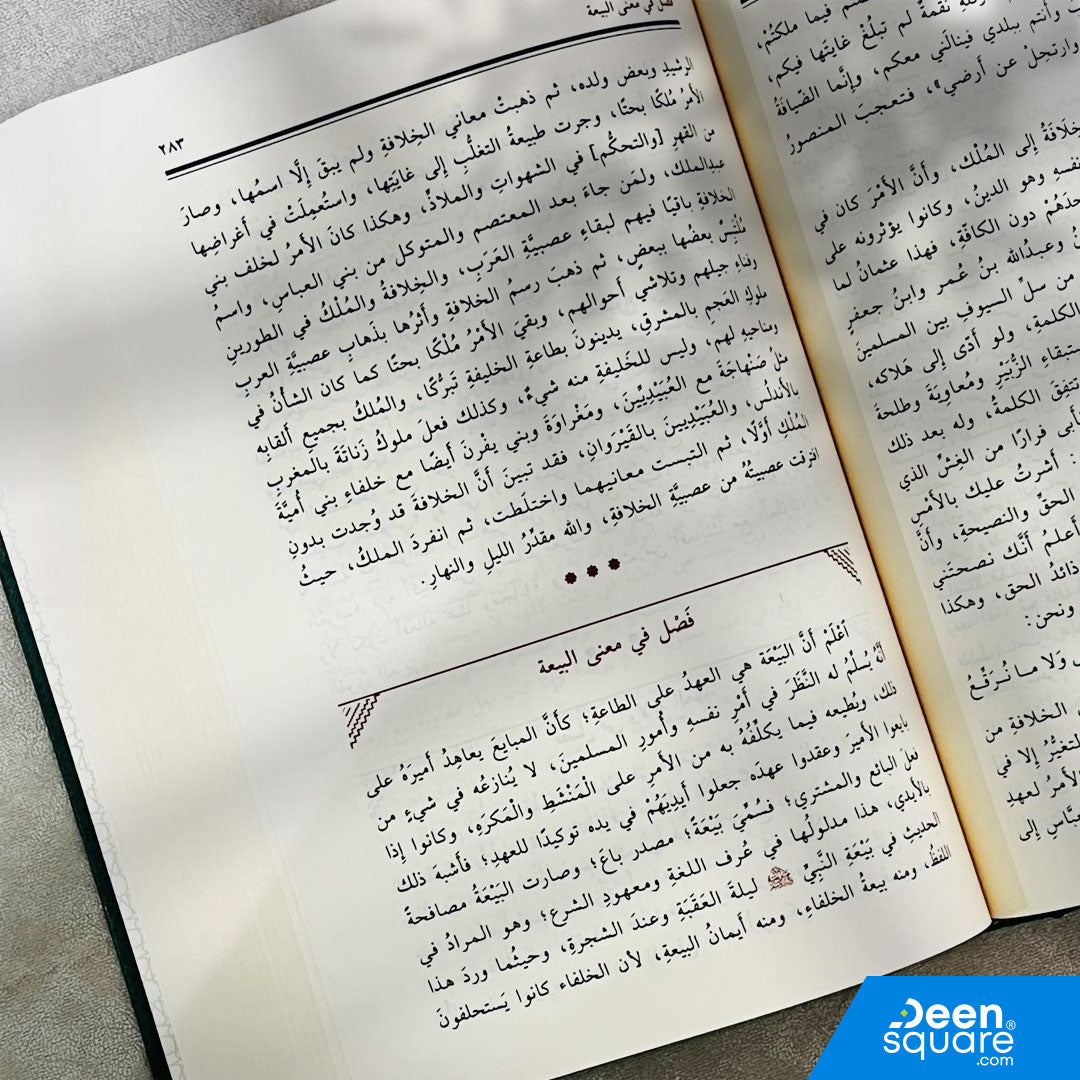 فصل في معنى البيعة
٢٨٣
الرشيدِ وبعض ولده، ثم ذهبتْ معاني الخِلافةِ ولم يبقَ إلَّا اسمُها، وصارَ
الأمرُ مُلكًا بحتًا، وجرت طبيعةُ التغلُّبِ إلى غايَتِها، واستُعمِلَتْ في أغراضِها
من القهرِ [والتحكُّم] في الشهواتِ والملاذِّ، وهكذا كانَ الأمرُ لخلف بني
عبدِالملك، ولمَن جاءَ بعد المعتصم والمتوكل من بني العباسِ، واسمُ
الخلافةِ باقيًا فيهم لبقاءِ عصبيَّةِ العَرَبِ، والخِلافةُ والمُلْكُ في الطورينِ
مُلْتَبِسٌ بعضُها ببعضٍ، ثم ذهبَ رسمُ الخلافةِ وأثرُها بذَهابِ عصبيَّةِ العربِ
وفناءِ جيلهم وتلاشي أحوالهم، وبقيَ الأمْرُ مُلْكًا بحتًا كما كان الشأنُ في
ملوكِ العَجمِ بالمشرقِ، يدينونَ بطاعةِ الخليفةِ تَبَرُّكًا، والمُلكُ بجميعِ ألقابِه
ومناحيهِ لهم، وليس للخَليفةِ منه شيءٌ، وكذلك فعلَ ملوكُ زَناتَةَ بالمغربِ
مثلُ صَنْهاجَةَ مع العُبَيْدِيِّينَ، ومَغْراوَةَ وبني يفْرنَ أيضًا مع خلفاءِ بني أُميَّةَ
بالأندلُسِ، والعُبَيْدِيينَ بالقَيْرَوانِ، فقد تبينَ أنَّ الخلافةَ قد وُجدت بدونِ
المُلْكِ أوَّلًا، ثم التبست معانيهما واختلَطت، ثم انفردَ الملكُ، حيثُ
افترقت عصبيتُهُ من عصبيَّةِ الخلافةِ، والله مقدِّرُ الليلِ والنهارِ.
فَصْل في معنى البيعة
اعْلَمْ أَنَّ البَيْعَةَ هي العهدُ على الطاعةِ؛ كأَنَّ المبايعَ يعاهِدُ أميرَهُ على
أنَّهُ يُسلِّمُ له النَّظَرَ في أمْرِ نفسهِ وأُمورِ المسلمينَ، لا يُنازعُه في شيءٍ من
ذلك، ويُطيعه فيما يكلِّفُهُ به من الأمرِ على الْمَنْشَطِ والْمَكرَهِ، وكانوا إذا
بايعوا الأميرَ وعقدوا عهدَه جعلوا أيدِيَهُمْ في يده توكيدًا للعهدِ؛ فأشبهَ ذلك
فعلَ البائع والمشتري؛ فسُمِّيَ بَيْعَةً؛ مصدر باعَ؛ وصارت البَيْعَةُ مصافحةً
بالأيدي، هذا مدلولُها في عُرف اللغةِ ومعهودِ الشرعِ؛ وهو المرادُ في
الحديثِ في بَيْعَةِ النَّبيِّ ﷺ ليلةَ العَقَبَةِ وعندَ الشجرةِ، وحيثُما وردَ هذا
اللفظُ، ومنه بيعةُ الخلفاءِ، ومنه أيمانُ البيعةِ، لأن الخلفاء كانوا يَستحلفونَ
فيما ملكتُمْ،
نقمةٌ لم تبلُغْ غايَتَها فيكم،
وأنتم ببلدي فينالَني معكم، وإنَّما الضّيافَةُ
وارتحِلْ عن أرضي»، فتعجبَ المنصورُ
إلى المُلْك، وأنَّ الأمْرَ كان في
وهو الدينُ، وكانوا يؤثرونه على
دون الكافَّةِ، فهذا عثمانُ لما
وعبدُالله بنُ عُمر وابنُ جعفرٍ
من سلِّ السيوفِ بين المسلمينَ
الكلمةِ، ولو أدّى إلى هَلاكه،
الزُّبَيْرِ ومُعاوِيَةَ وطلحةَ
تتفِقَ الكلمةُ، وله بعد ذلك
فرارًا من الغِشِّ الذي
: أشرتُ عليك بالأمْسِ
الحقِّ والنصيحةِ، وأنَّ
أعلمُ أنَّك نصحتَني
ذائدُ الحق، وهكذا
ونحن:
وَلا ما نُرَقِّعُ
الخلافةِ من
التغيُّرُ إلا في
الأمرُ لعهدِ
إلى
Deen
square®
.com